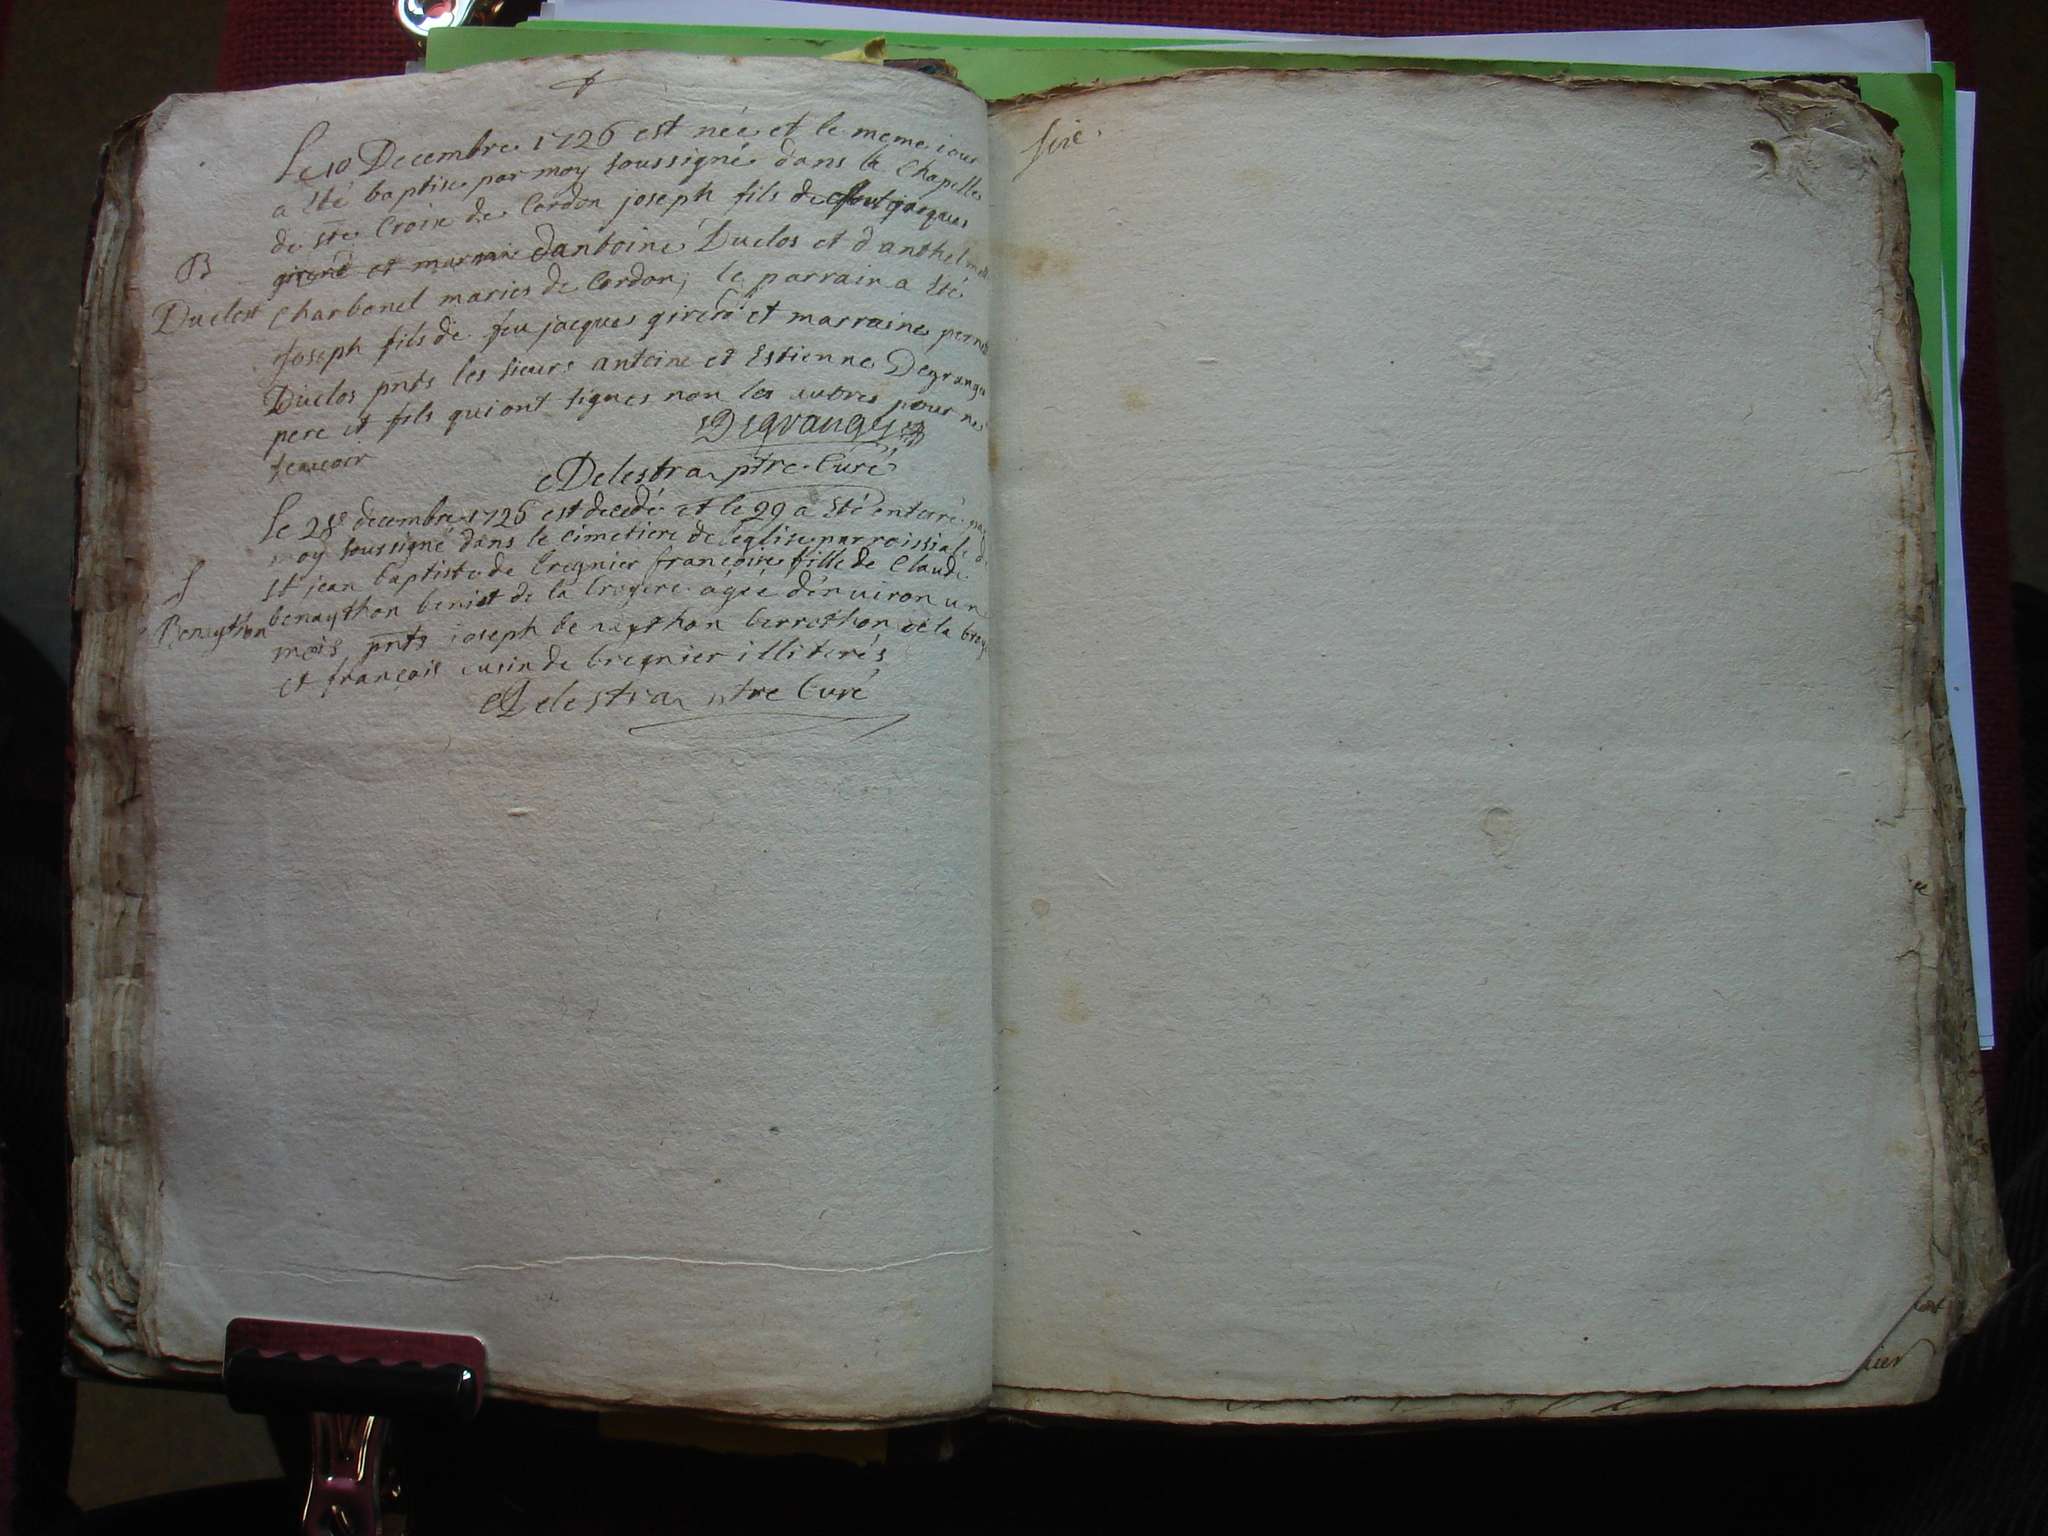 Le 10 Decembre 1726 est née et le meme iour
a été baptise par moy soussigné dans la Chapelle
de ste Croix de Cordon joseph fils de jacques
B
girerd et marraine d'antoine Duclos et d'anthelmett
Duclost
Charbonel maries de Cordon, le parrain a été
joseph fils de feu jacques girerd et marraine pernett
Duclos pnts les sieurs antoine et Estienne Degrange
pere et fils qui ont signes non les autres pour ne
scavoir
Degranges
Delestra ptre Curé
Le 28e decembre 1726 est decedé et le 29 a été enterré par
moy soussigné dans le cimetiere de leglise parroissiale de
St jean baptiste de Bregnier françoise fille de Claude
S
benaython benist de la bruyere agée d'énviron un
Benaython
mois pnts joseph benaython berrothon de la bruy
et françois cusin de bregnier illiterés
Delestra ptre Curé
sire.